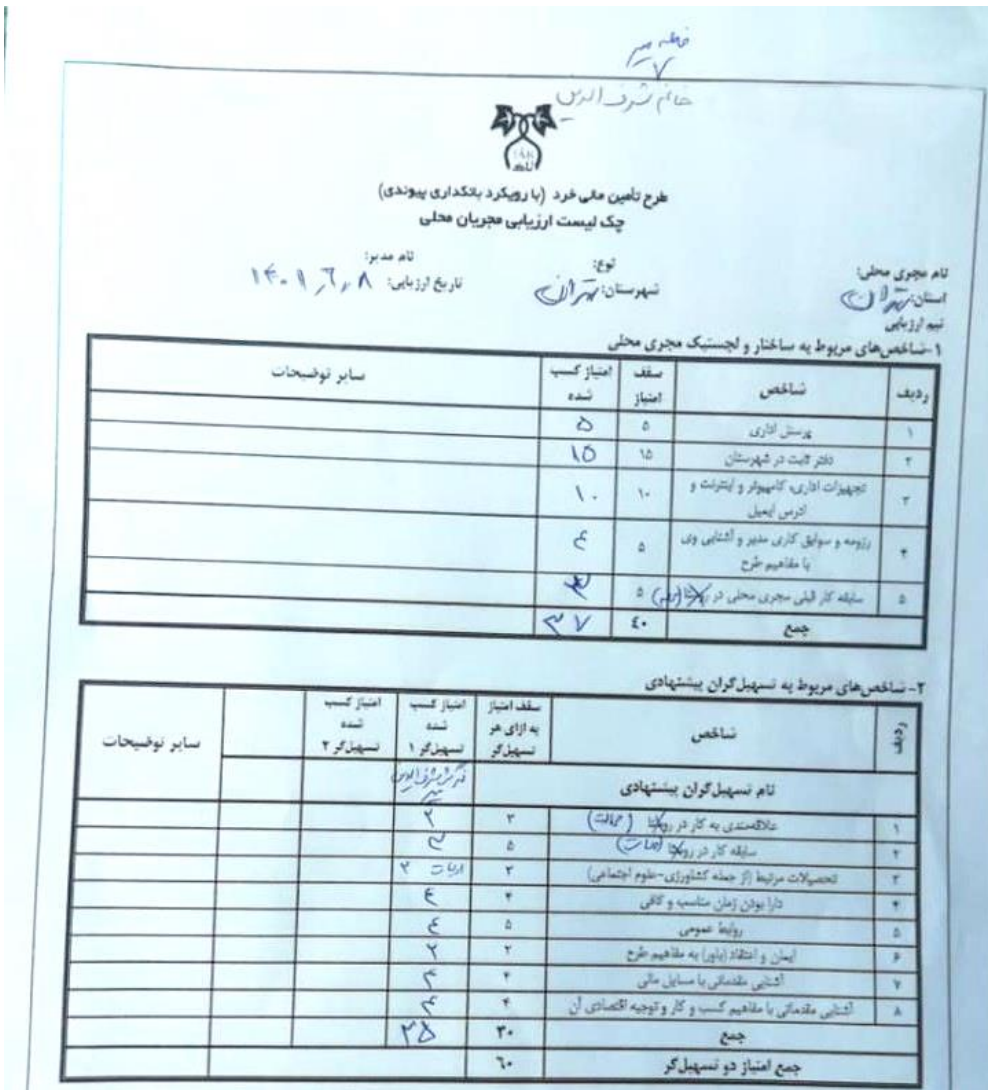 خانم شرف الدین
طرح تأمین مالی خرد (با رویکرد بانکداری پیوندی)
چک لیست ارزیابی مجریان محلی
نام مجری محلی: نوع: نام مدیر:
استان: تهران شهرستان: تهران تاریخ ارزیابی: ۱۴۰۱٫۶٫۸
تیم ارزیابی
۱-شاخص‌های مربوط به ساختار و لجستیک مجری محلی
ردیف شاخص سقف امتیاز امتیاز کسب شده سایر توضیحات
۱ پرسنل اداری ۵ ۵
۲ دفتر ثابت در شهرستان ۱۵ ۱۵
۳ تجهیزات اداری، کامپیوتر و اینترنت و آدرس ایمیل ۱۰ ۱۰
۴ رزومه و سوابق کاری مدیر و آشنایی وی با مفاهیم طرح ۵ ۴
۵ سابقه کار قبلی مجری محلی در روستا ۵ ۳
جمع ۴۰ ۳۷
۲- شاخص‌های مربوط به تسهیل‌گران پیشنهادی
ردیف شاخص سقف امتیاز به ازای هر تسهیل‌گر امتیاز کسب شده تسهیل‌گر ۱ امتیاز کسب شده تسهیل‌گر ۲ سایر توضیحات
نام تسهیل‌گران پیشنهادی
۱ علاقه‌مندی به کار در روستا (محلات) ۳ ۲
۲ سابقه کار در روستا (محلات) ۵ ۳
۳ تحصیلات مرتبط (از جمله کشاورزی-علوم اجتماعی) ۳ ادبیات ۲
۴ دارا بودن زمان مناسب و کافی ۴ ۴
۵ روابط عمومی ۵ ۴
۶ ایمان و اعتقاد (باور) به مفاهیم طرح ۲ ۲
۷ آشنایی مقدماتی با مسایل مالی ۴ ۴
۸ آشنایی مقدماتی با مفاهیم کسب و کار و توجیه اقتصادی آن ۴ ۴
جمع ۳۰ ۲۵
جمع امتیاز دو تسهیل‌گر ۶۰